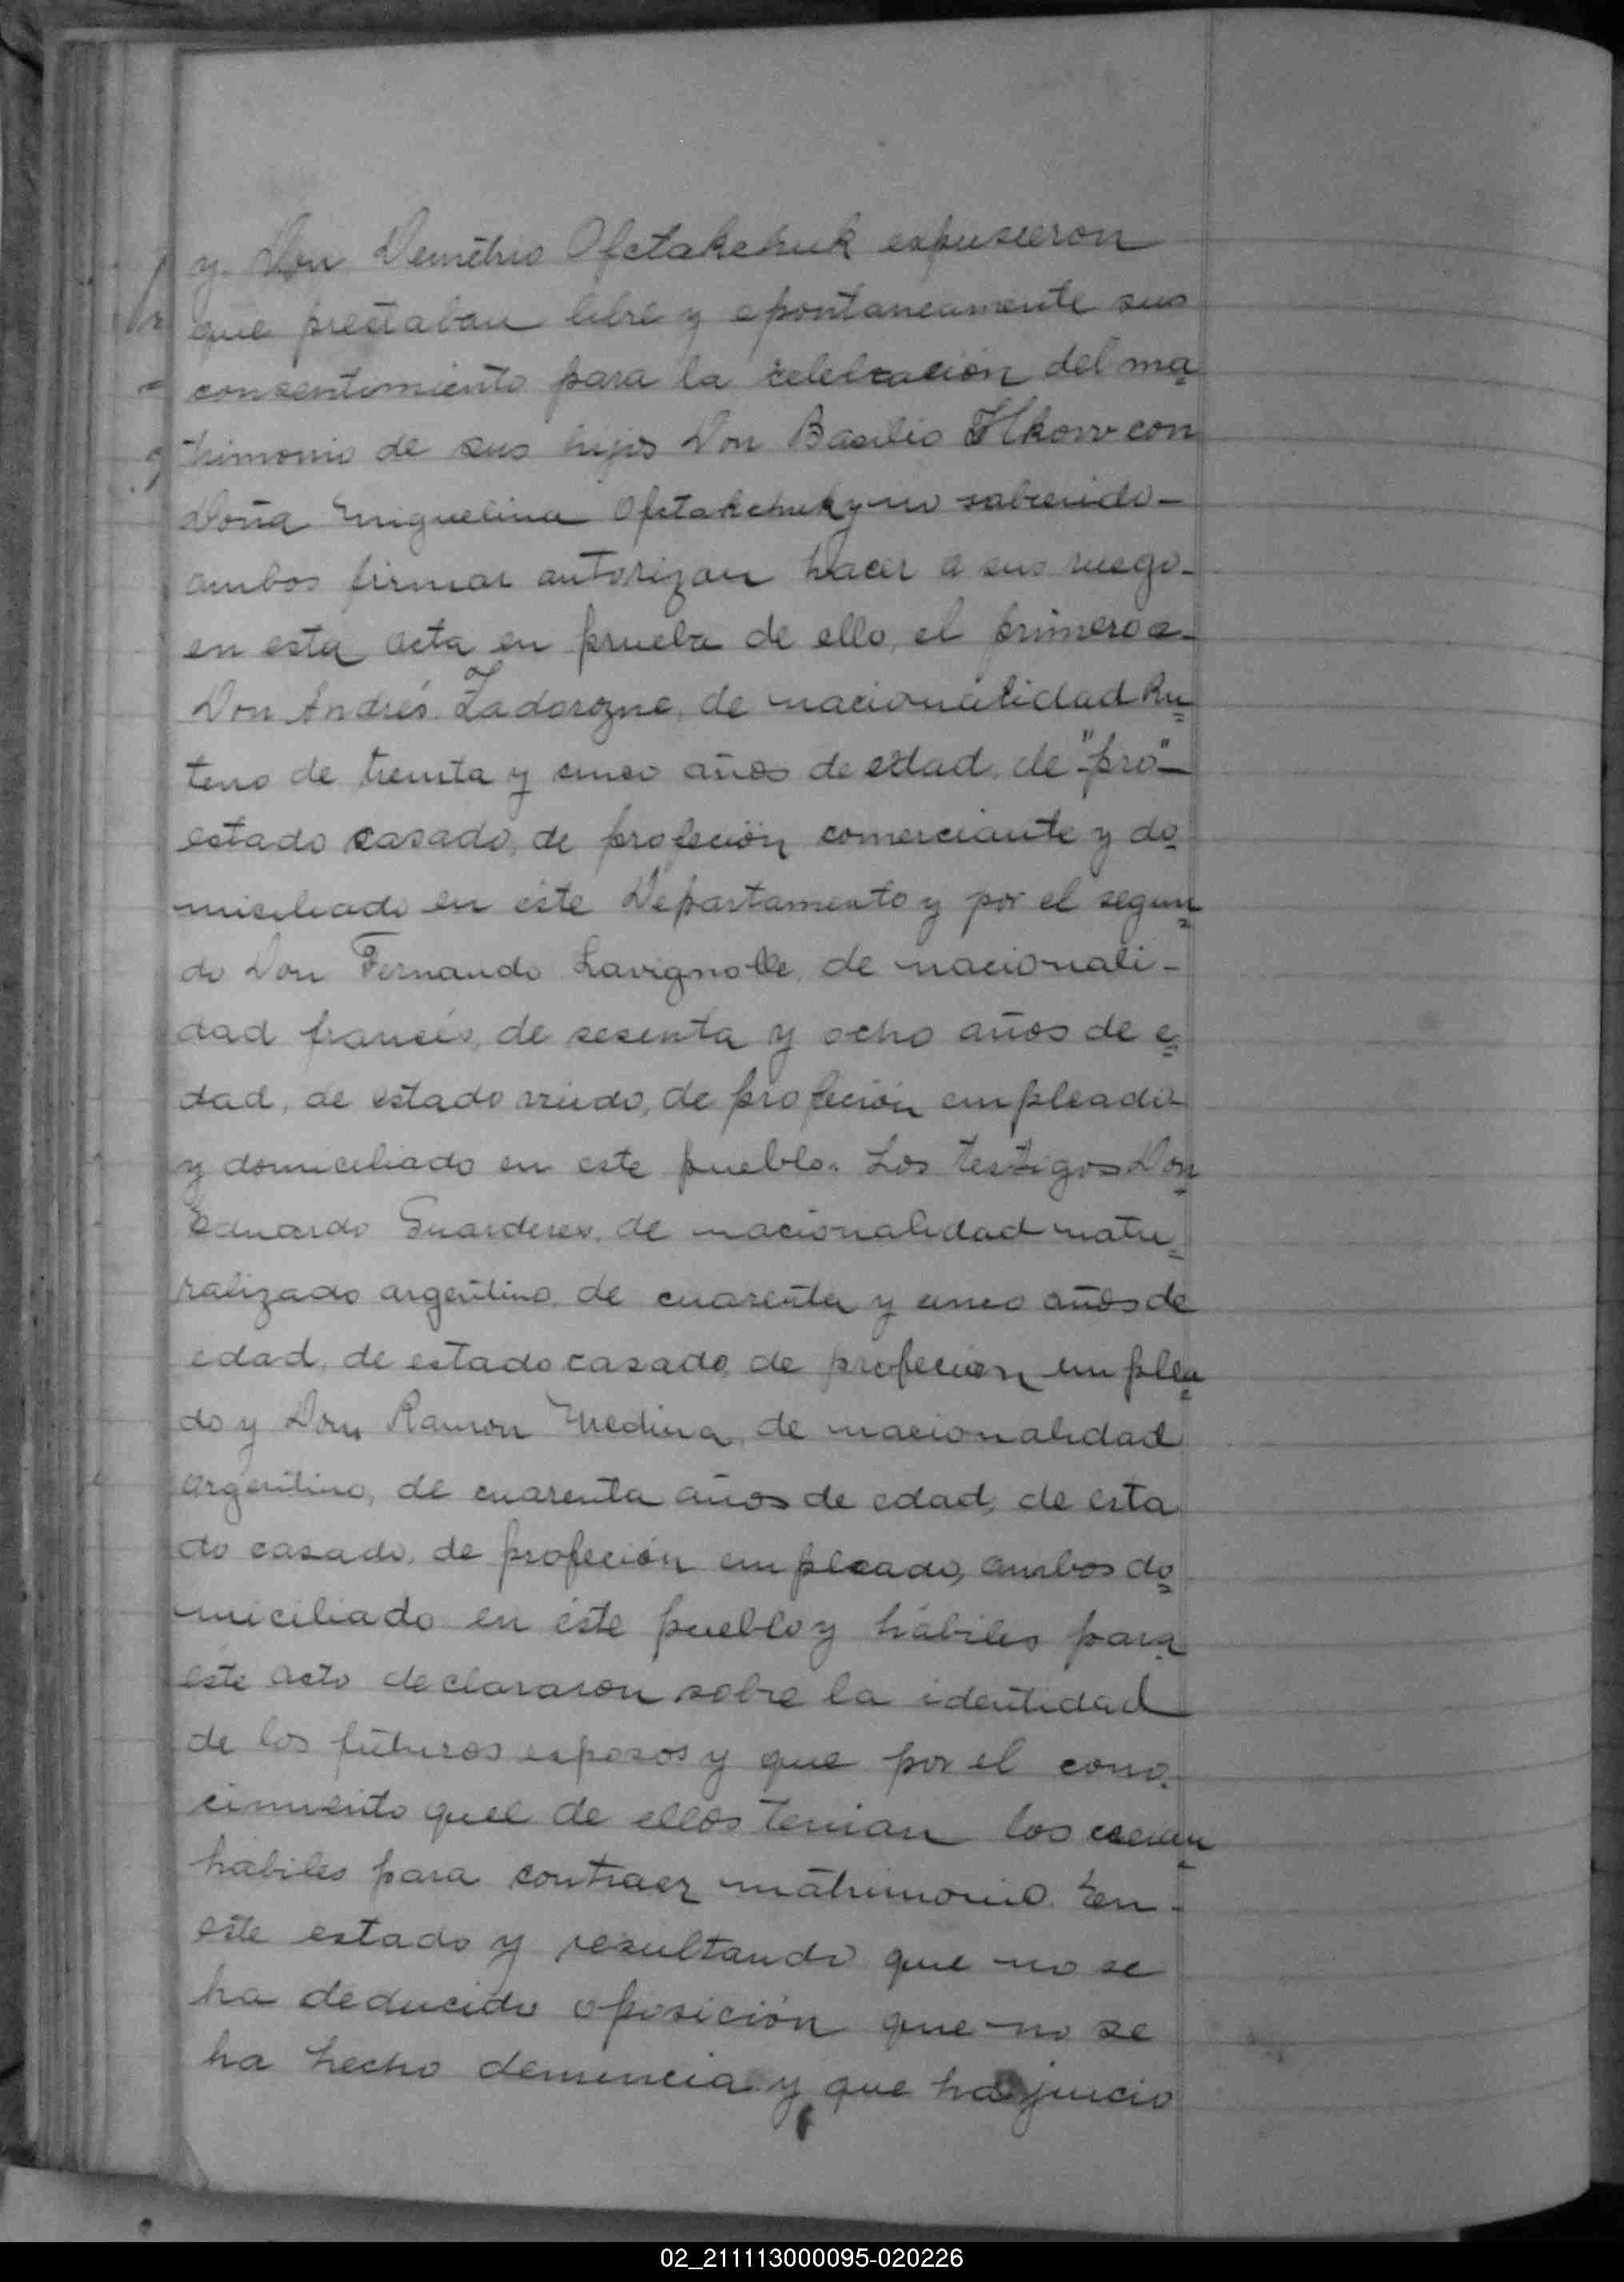 y Don Demetrio Ofctakchuk expusieron
que prestaban libre y epontaneamente sus
consentimiento para la celebración del ma
trimonio de sus hijos Don Basilio Hkow con
Doña Miguelina Ofctakchuk y no sabiendo-
ambos firmar autorizan hacer a sus ruego-
en esta acta en prueba de ello, el primero a-
Don Andrés Zadorozne, de nacionalidad Ru=
teno de treinta y cinco años de edad, de "pro"-
estado casado, de profeción comerciante y do=
miciliado en éste Departamento y por el segun=
do Don Fernando Lavignolle, de nacionali-
dad francés, de sesenta y ocho años de e=
dad, de estado viudo, de profeción empleado
y domiciliado en este pueblo. Los testigos Don
Eduardo Guarderes, de nacionalidad natu=
ralizado argentino, de cuarenta y cinco años de
edad, de estado casado, de profecion emplea=
do y Don Ramon Medina, de nacionalidad
argentino, de cuarenta años de edad, de esta
do casado, de profeción empleado, ambos do=
miciliado en éste pueblo y hábiles para
éste acto declararon sobre la identidad
de los futuros esposos y que por el cono=
cimiento quel de ellos tenian los creian
hábiles para contraer matrimonio. En-
este estado y resultando que no se
ha deducido oposición que no se
ha hecho denuncia y que ha juicio
02_211113000095-020226